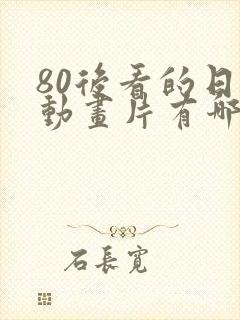 80後看的日
動畫片有哪
石長寬